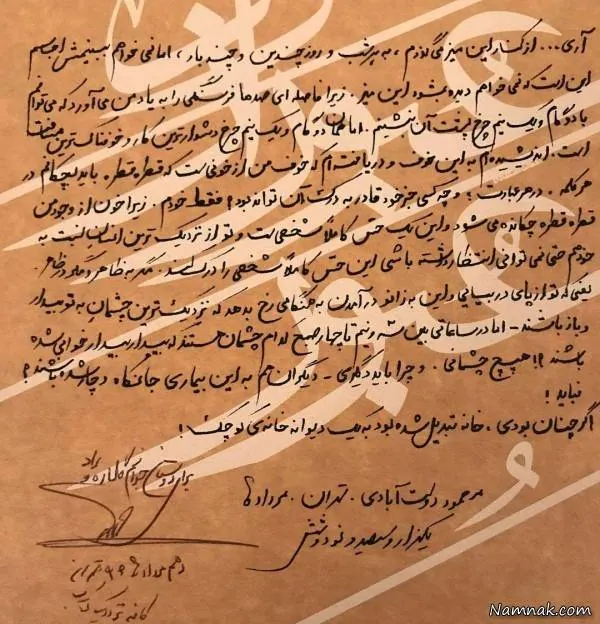 آری... از کنار این میز می‌گذرم، به هر شب و روز چندین و چند بار، اما نمی خواهم ببینمش اجسم
این است که نمی خواهم دیده بشود این میز. زیرا فاصله ای صدها فرسنگی را به یاد من می آورد که می توانم
با دو گام و یک نیم چرخ پشت آن بنشینم. اما همان دو گام و یک نیم چرخ دشوارترین کار و خوفناک ترین مسافت
است. اندیشیده ام به این خوف و دریافته ام که خوف من از خونی ست که قطره قطره باید بچکانم در
هر کلمه. در هر عبارت؛ و چه کسی جز خود قادر به درک آن تواند بود؟ فقط خودم. زیرا خون از وجود من
قطره قطره چکانده می شود و این یک حس کاملاً شخصی ست و تو از نزدیک ترین انسان نسبت به
خود هم حتی نمی توانی انتظار داشته باشی این حس کاملاً شخصی را درک کند. مگر به ظاهر و گاه در ظاهر.
یعنی که تو از پای در بیایی و این به زانو در آمدن به هنگامی رخ بدهد که نزدیک ترین چشمان به تو بیدار
و باز باشند - اما در ساعاتی بین سه و نیم تا چهار صبح کدام چشمان هستند که بیدار بیدارخوابی شده
باشند؟! هیچ چشمانی. و چرا باید دیگری - دیگران هم به این بیماری جانکاه دچار شده باشند؟
نباید!
اگر چنان بودی، خانه تبدیل شده بود به یک دیوانه خانه ی کوچک!
محمود دولت آبادی. تهران. مرداد ماه
یکهزار و سیصد و نود و شش
برای دوستان
دهم مرداد ماه ۹۶ تهران
Namnak.com